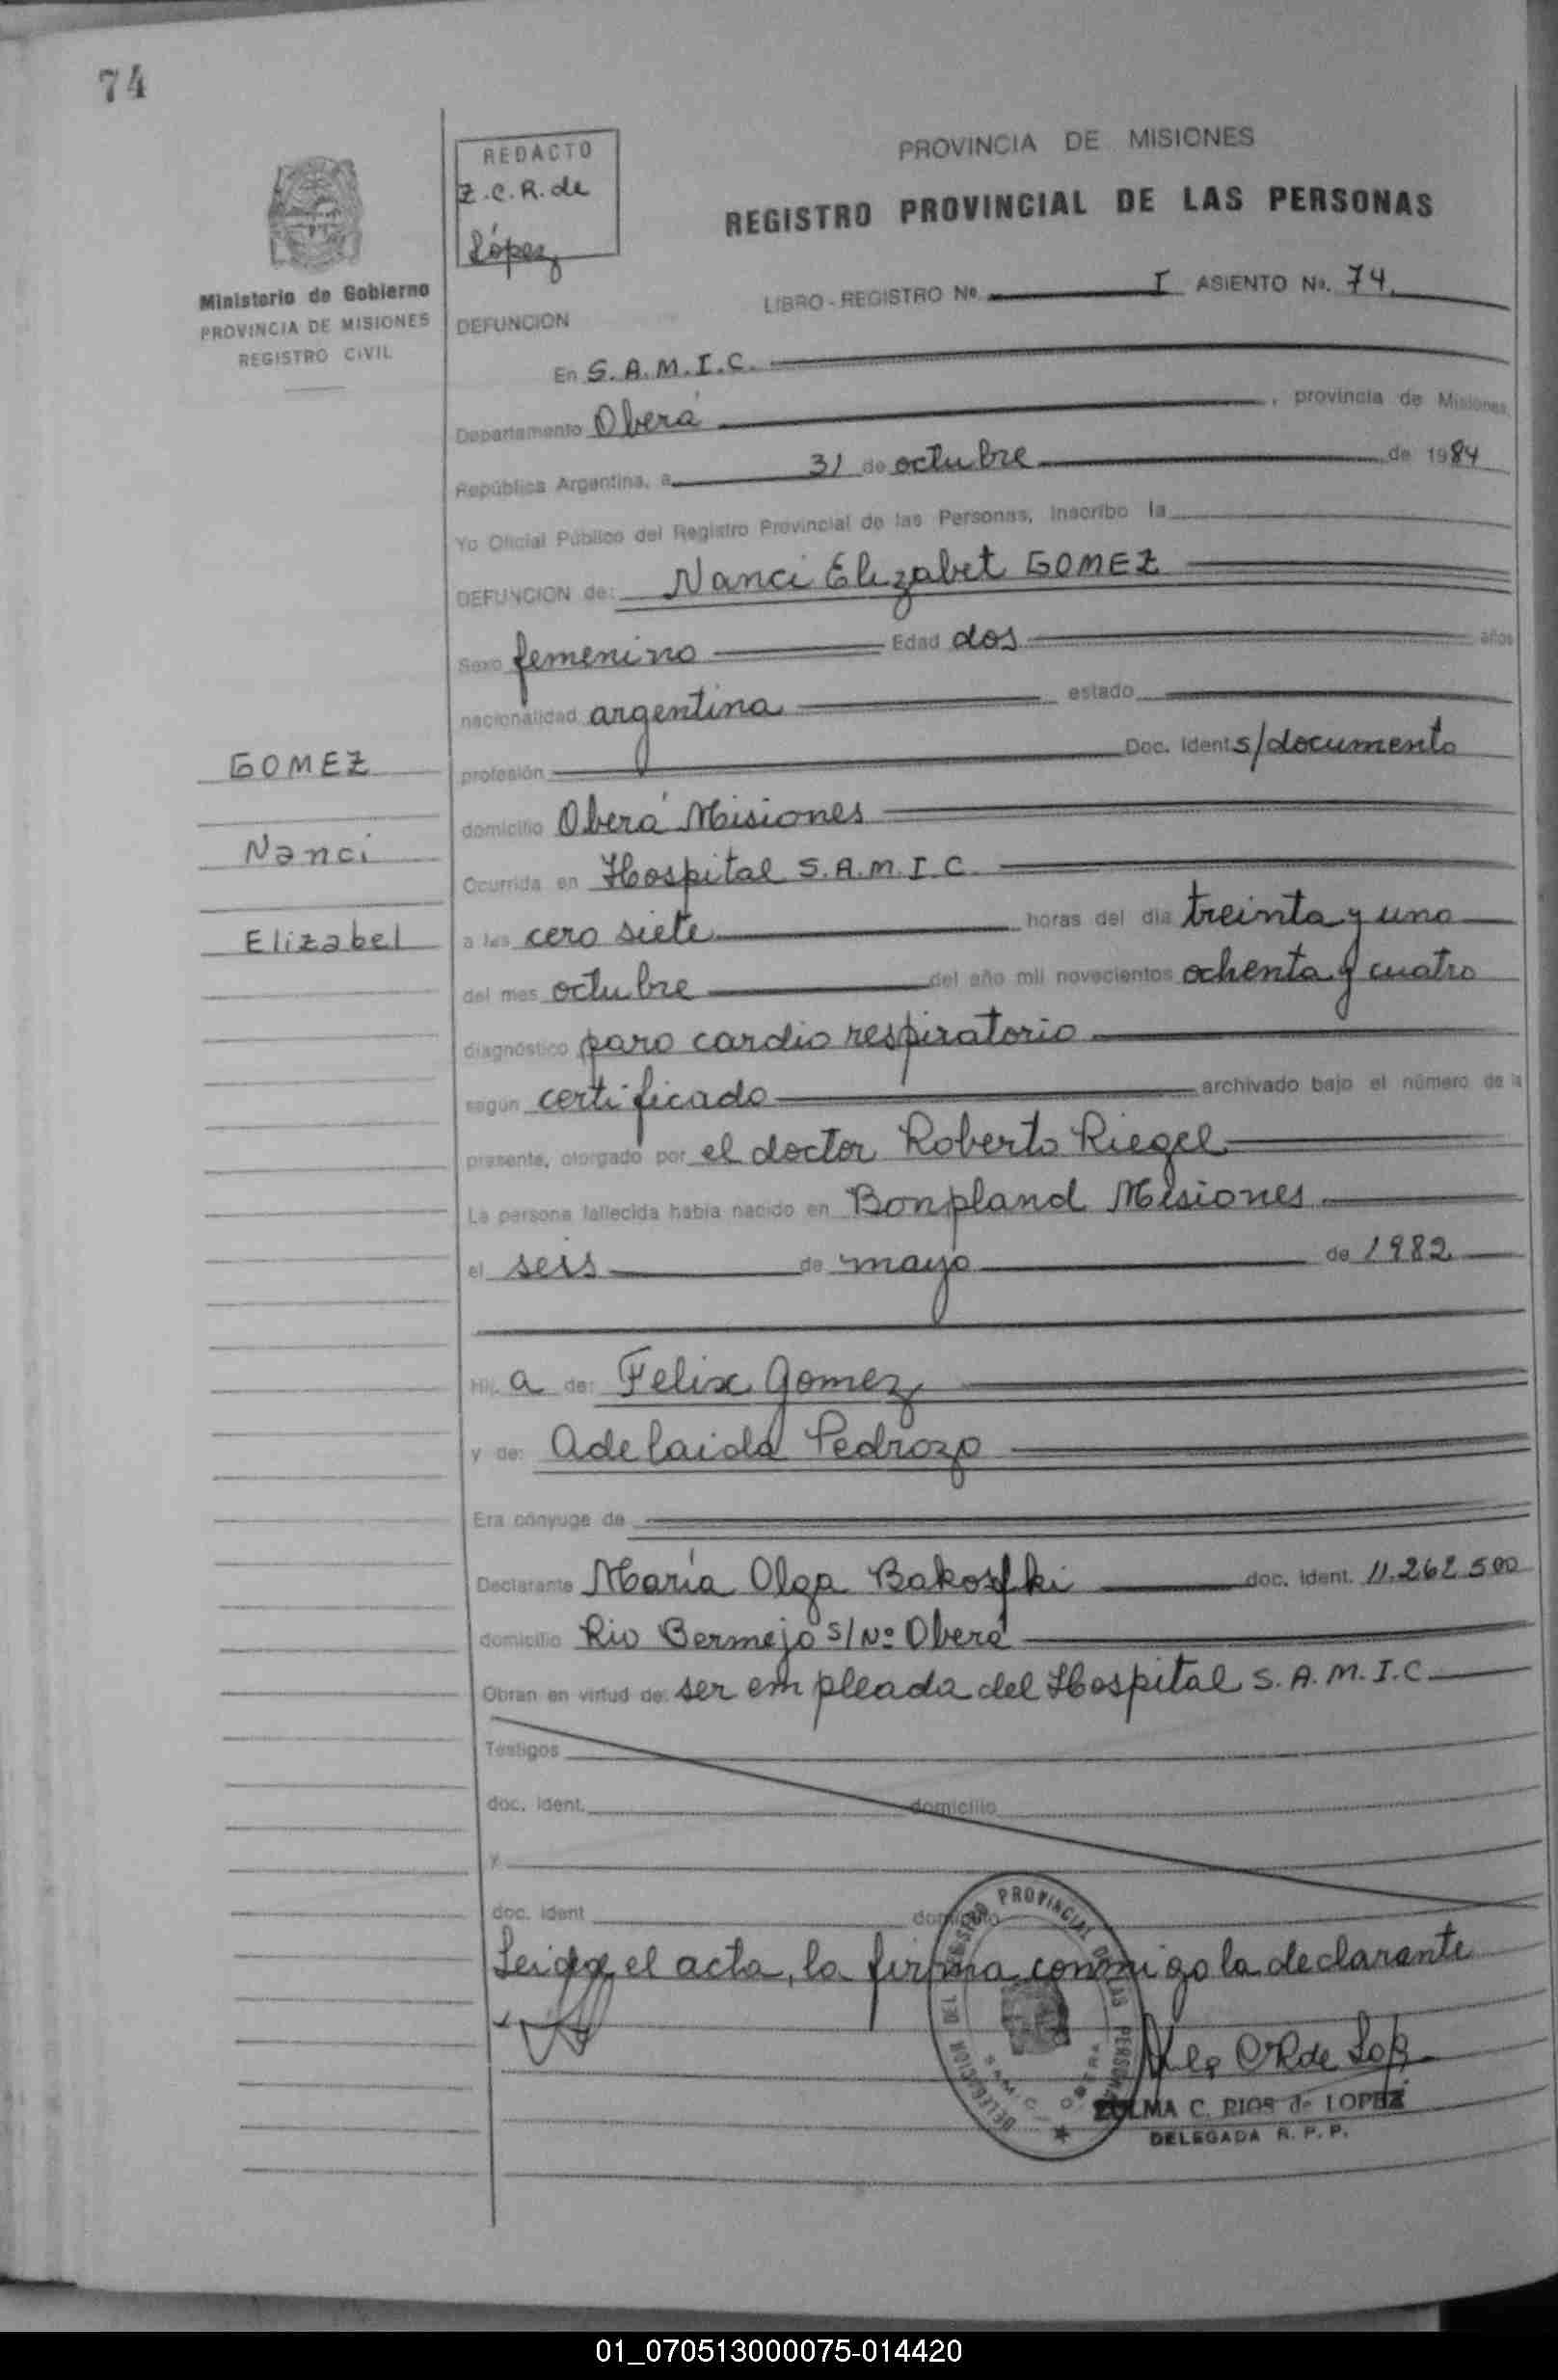 74
REDACTO
Z.C.R. de
López
Ministerio de Gobierno
PROVINCIA DE MISIONES
REGISTRO CIVIL
PROVINCIA DE MISIONES
REGISTRO PROVINCIAL DE LAS PERSONAS
LIBRO - REGISTRO Nº I ASIENTO Nº. 74
DEFUNCION
En S.A.M.I.C.
Departamento Oberá, provincia de Misiones,
República Argentina, a 31 de octubre de 1984
Yo Oficial Público del Registro Provincial de las Personas, inscribo la
DEFUNCION de: Nanci Elizabet GOMEZ
Sexo femenino Edad dos años
nacionalidad argentina estado
profesión Doc. Ident s/documento
domicilio Oberá Misiones
Ocurrida en Hospital S.A.M.I.C.
a las cero siete horas del día treinta y uno
del mes octubre del año mil novecientos ochenta y cuatro
diagnóstico paro cardio respiratorio
según certificado archivado bajo el número de la
presente, otorgado por el doctor Roberto Riegel
La persona fallecida había nacido en Bonpland Misiones
el seis de mayo de 1982
Hij a de: Felix Gomez
y de: Adelaida Pedrozo
Era cónyuge de
Declarante María Olga Bakosfki doc. ident. 11.262.500
domicilio Rio Bermejo s/Nº Oberá
Obran en virtud de: ser empleada del Hospital S.A.M.I.C
Testigos
doc. ident. domicilio
y
doc. ident domicilio
Leida el acta, la firma conmigo la declarante
GOMEZ
Nanci
Elizabel
DELEGACION DEL REGISTRO PROVINCIAL DE LAS PERSONAS
S.A.M.I.C. OBERA
ZULMA C. RIOS de LOPEZ
DELEGADA R. P. P.
01_070513000075-014420